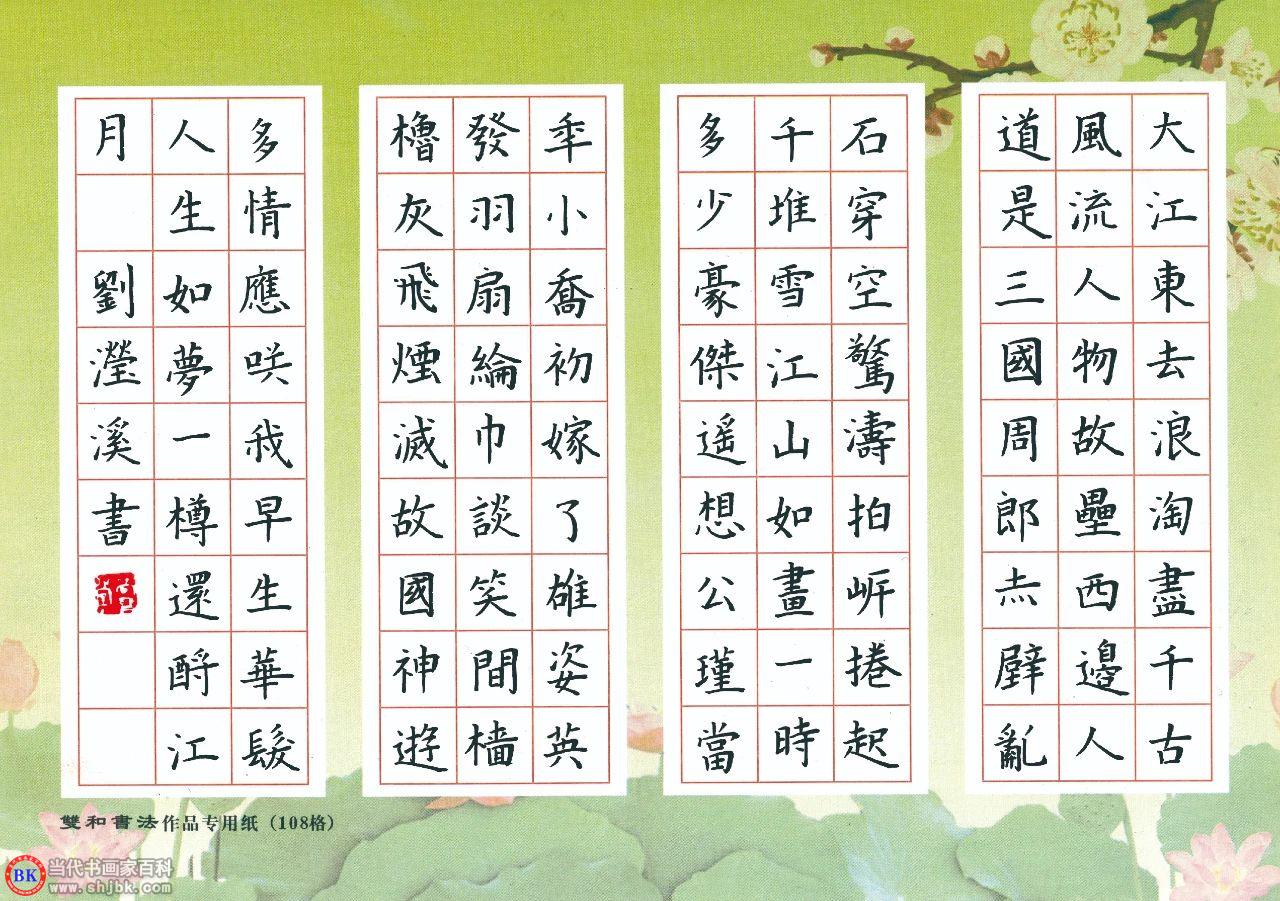 大江東去浪淘盡千古
風流人物故壘西邊人
道是三國周郎赤壁亂
石穿空驚濤拍岍捲起
千堆雪江山如畫一時
多少豪傑遥想公瑾當
秊小喬初嫁了雄姿英
發羽扇綸巾談笑間檣
櫓灰飛煙滅故國神遊
多情應咲我早生華髮
人生如夢一樽還酹江
月 劉瀅溪書
雙和書法作品专用纸（108格）
BK 当代书画家百科
www.shjbk.com